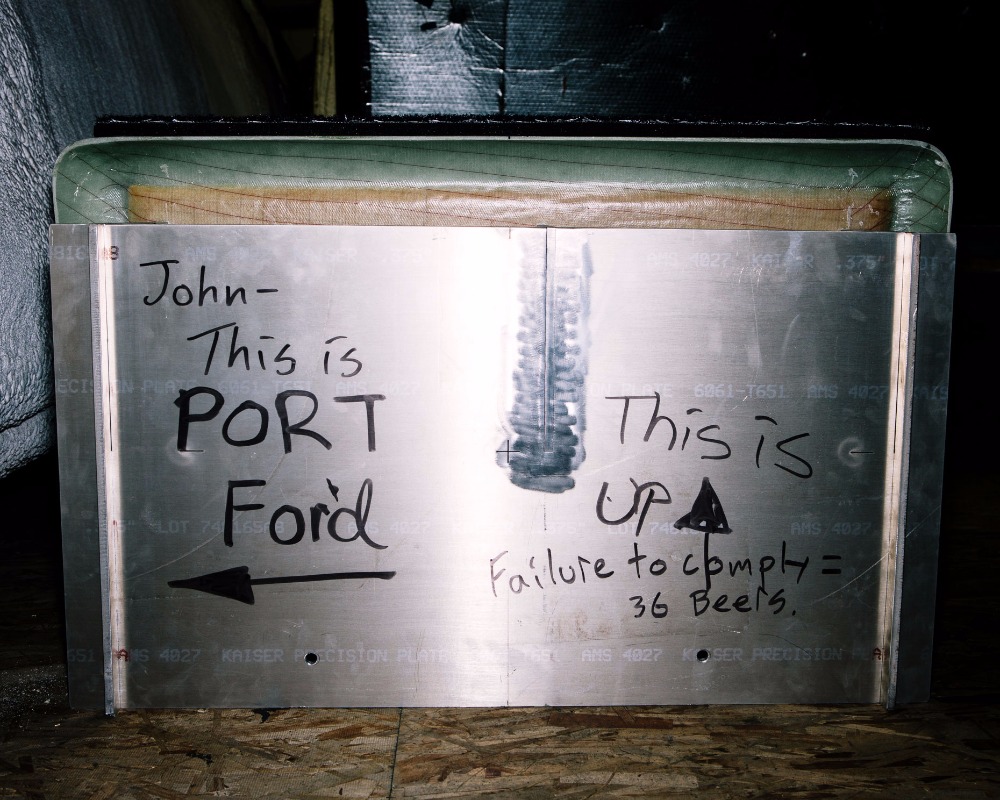 John-
This is
PORT
Ford
This is
UP
Failure to comply =
36 Beers.
AMS 4027 KAISER .375" LOT 7
PRECISION PLATE 6061-T651 AMS 4027
PLATE 6061-T651 AMS 4027
LOT
AMS 4027
651 AMS 4027 KAISER PRECISION PLATE
T651 AMS 4027 KAISER PRECISION PLA